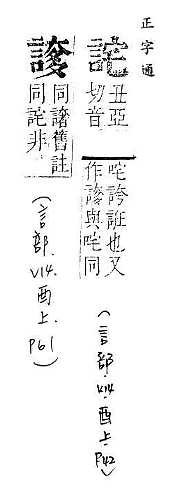 正字通
詫
丑亞
切音
咤誇誑也又
作與咤同
(言部.V14.酉上.P42)
同譇舊註
同詫非
(言部.V14.酉上.P61)